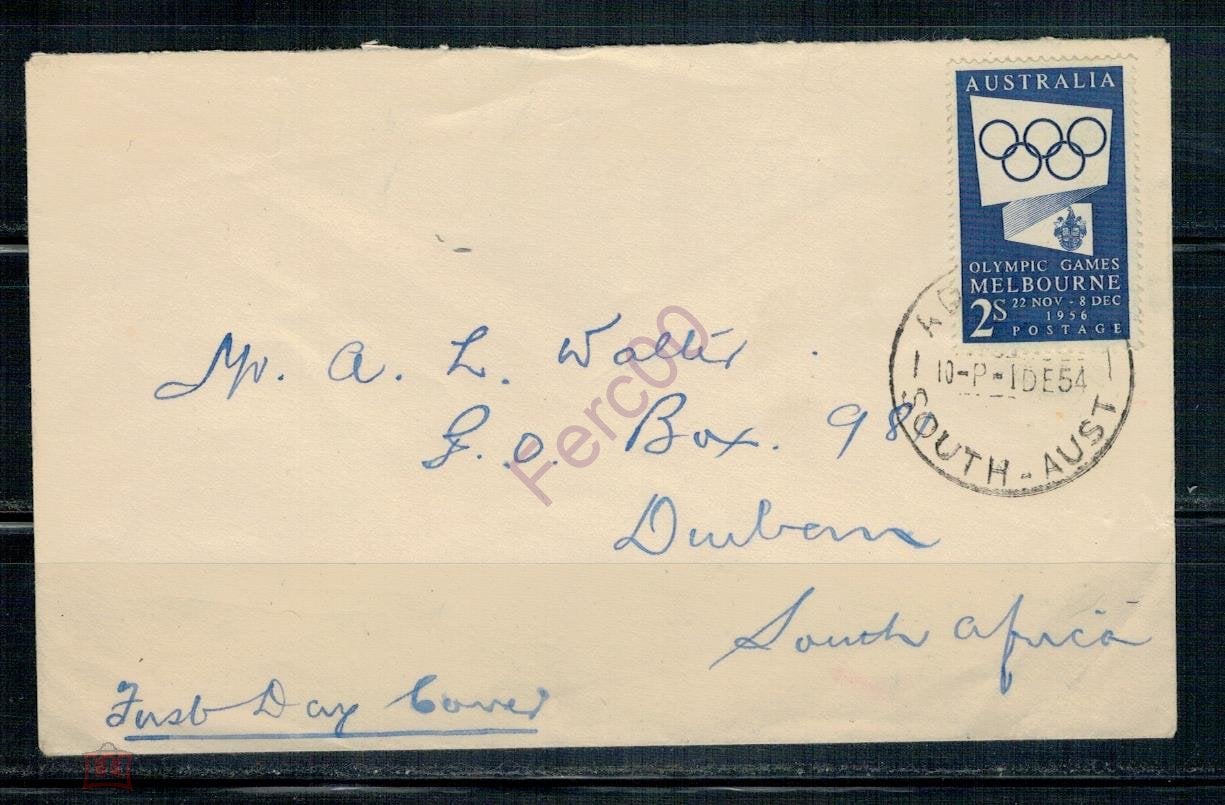 AUSTRALIA
OLYMPIC GAMES
MELBOURNE
2S 22 NOV - 8 DEC
1956
POSTAGE
10-P-1DE54
SOUTH-AUST
Mr. A. L. Walter
P.O. Box. 981
Durban
South Africa
First Day Cover
Ferc00